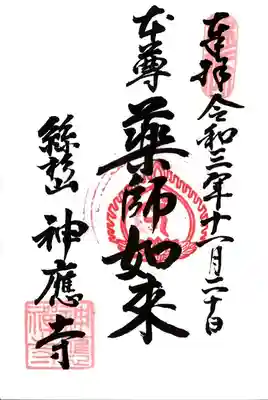 奉拝 令和三年十一月二十日
本尊 藥師如来
絲杉山 神應寺